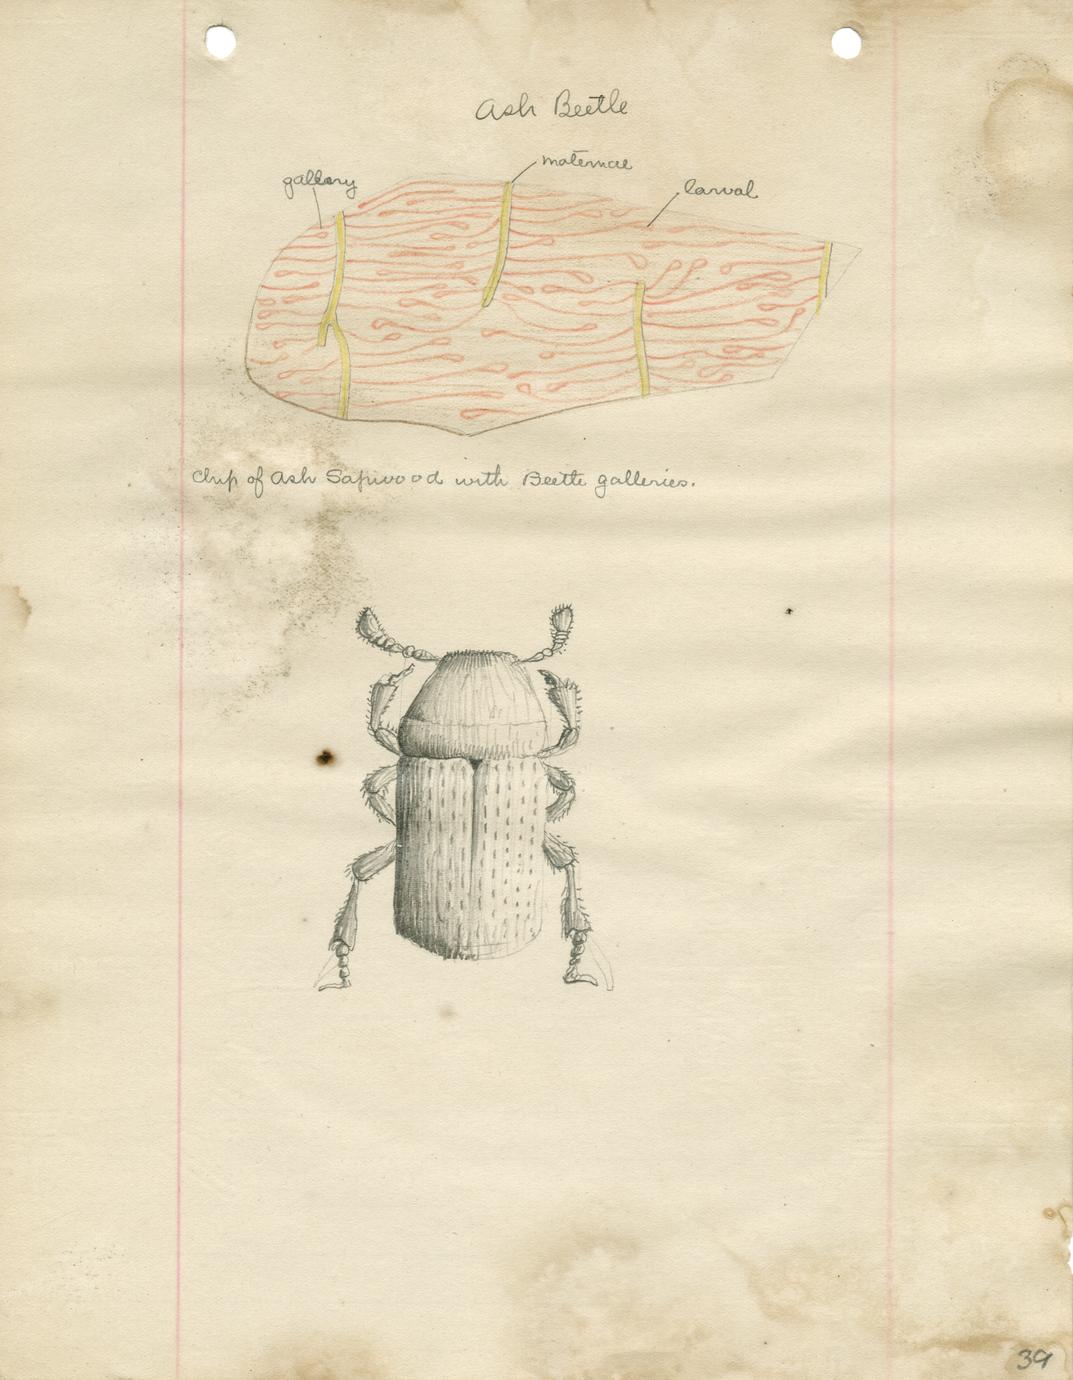 Ash Beetle
maternae
gallery
larval
Chip of Ash Sapwood with Beetle galleries.
39